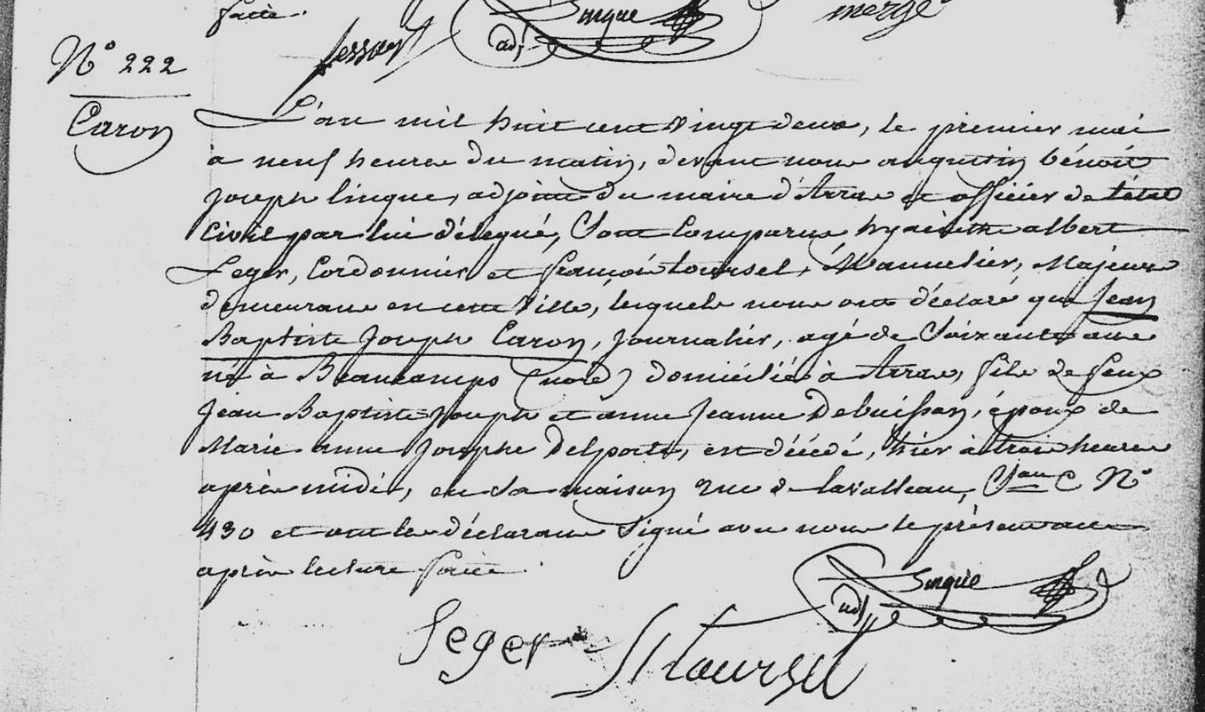 faite.
Lingue
adj.
N° 222
Caron
L'an mil huit cent vingt deux, le premier mai
à neuf heures du matin, devant nous augustin bénoit
joseph lingue, adjoint du maire d'Arras et officier de l'état
civil par lui délégué, Sont Comparus hyacinthe albert
Leger, Cordonnier et françois toursel, Mannelier, Majeurs
demeurans en cette Ville, lesquels nous ont déclaré que Jean
Baptiste Joseph Caron, Journalier, agé de Soixante ans
né à Beaucamps (nord) domicilié à Arras, fils de feux
Jean Baptiste Joseph et anne Jeanne Debuisson, époux de
Marie anne Josephe Delporte, est décédé, hier à trois heures
après midi, en Sa maison rue de C N°
430 et ont les déclarans Signé avec nous le présent acte
après lecture faite.
Lingue
adj.
Leger
toursel